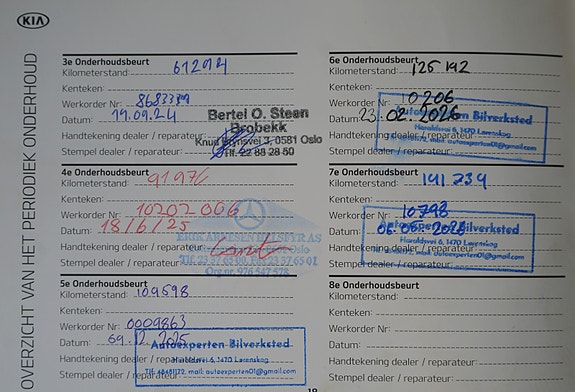 KIA
OVERZICHT VAN HET PERIODIEK ONDERHOUD
3e Onderhoudsbeurt
Kilometerstand: 61294
Kenteken:
Werkorder Nr: 8683339
Datum: 19.09.24
Handtekening dealer / reparateur:
Stempel dealer / reparateur:
Bertel O. Steen
Brobekk
Knud Brynsvei 3, 0581 Oslo
Tlf. 22 88 28 50
4e Onderhoudsbeurt
Kilometerstand: 91976
Kenteken:
Werkorder Nr: 10202006
Datum: 18/6/25
Handtekening dealer / reparateur:
Stempel dealer / reparateur:
Org.nr. 976 547 578
5e Onderhoudsbeurt
Kilometerstand: 109598
Kenteken:
Werkorder Nr: 0009863
Datum: 09.12.2025
Handtekening dealer / reparateur:
Stempel dealer / reparateur:
Autoexperten Bilverksted
Haraldsvei 6, 1470 Lørenskog
mail: autoexperten01@gmail.com
6e Onderhoudsbeurt
Kilometerstand: 125192
Kenteken:
Werkorder Nr: 10206
Datum: 23.02.2026
Handtekening dealer / reparateur:
Stempel dealer / reparateur:
Autoexperten Bilverksted
Haraldsvei 6, 1470 Lørenskog
mail: autoexperten01@gmail.com
7e Onderhoudsbeurt
Kilometerstand: 141739
Kenteken:
Werkorder Nr: 10798
Datum: 2026
Handtekening dealer / reparateur:
Stempel dealer / reparateur:
Autoexperten Bilverksted
Haraldsvei 6, 1470 Lørenskog
mail: autoexperten01@gmail.com
8e Onderhoudsbeurt
Kilometerstand:
Kenteken:
Werkorder Nr:
Datum:
Handtekening dealer / reparateur:
Stempel dealer / reparateur: